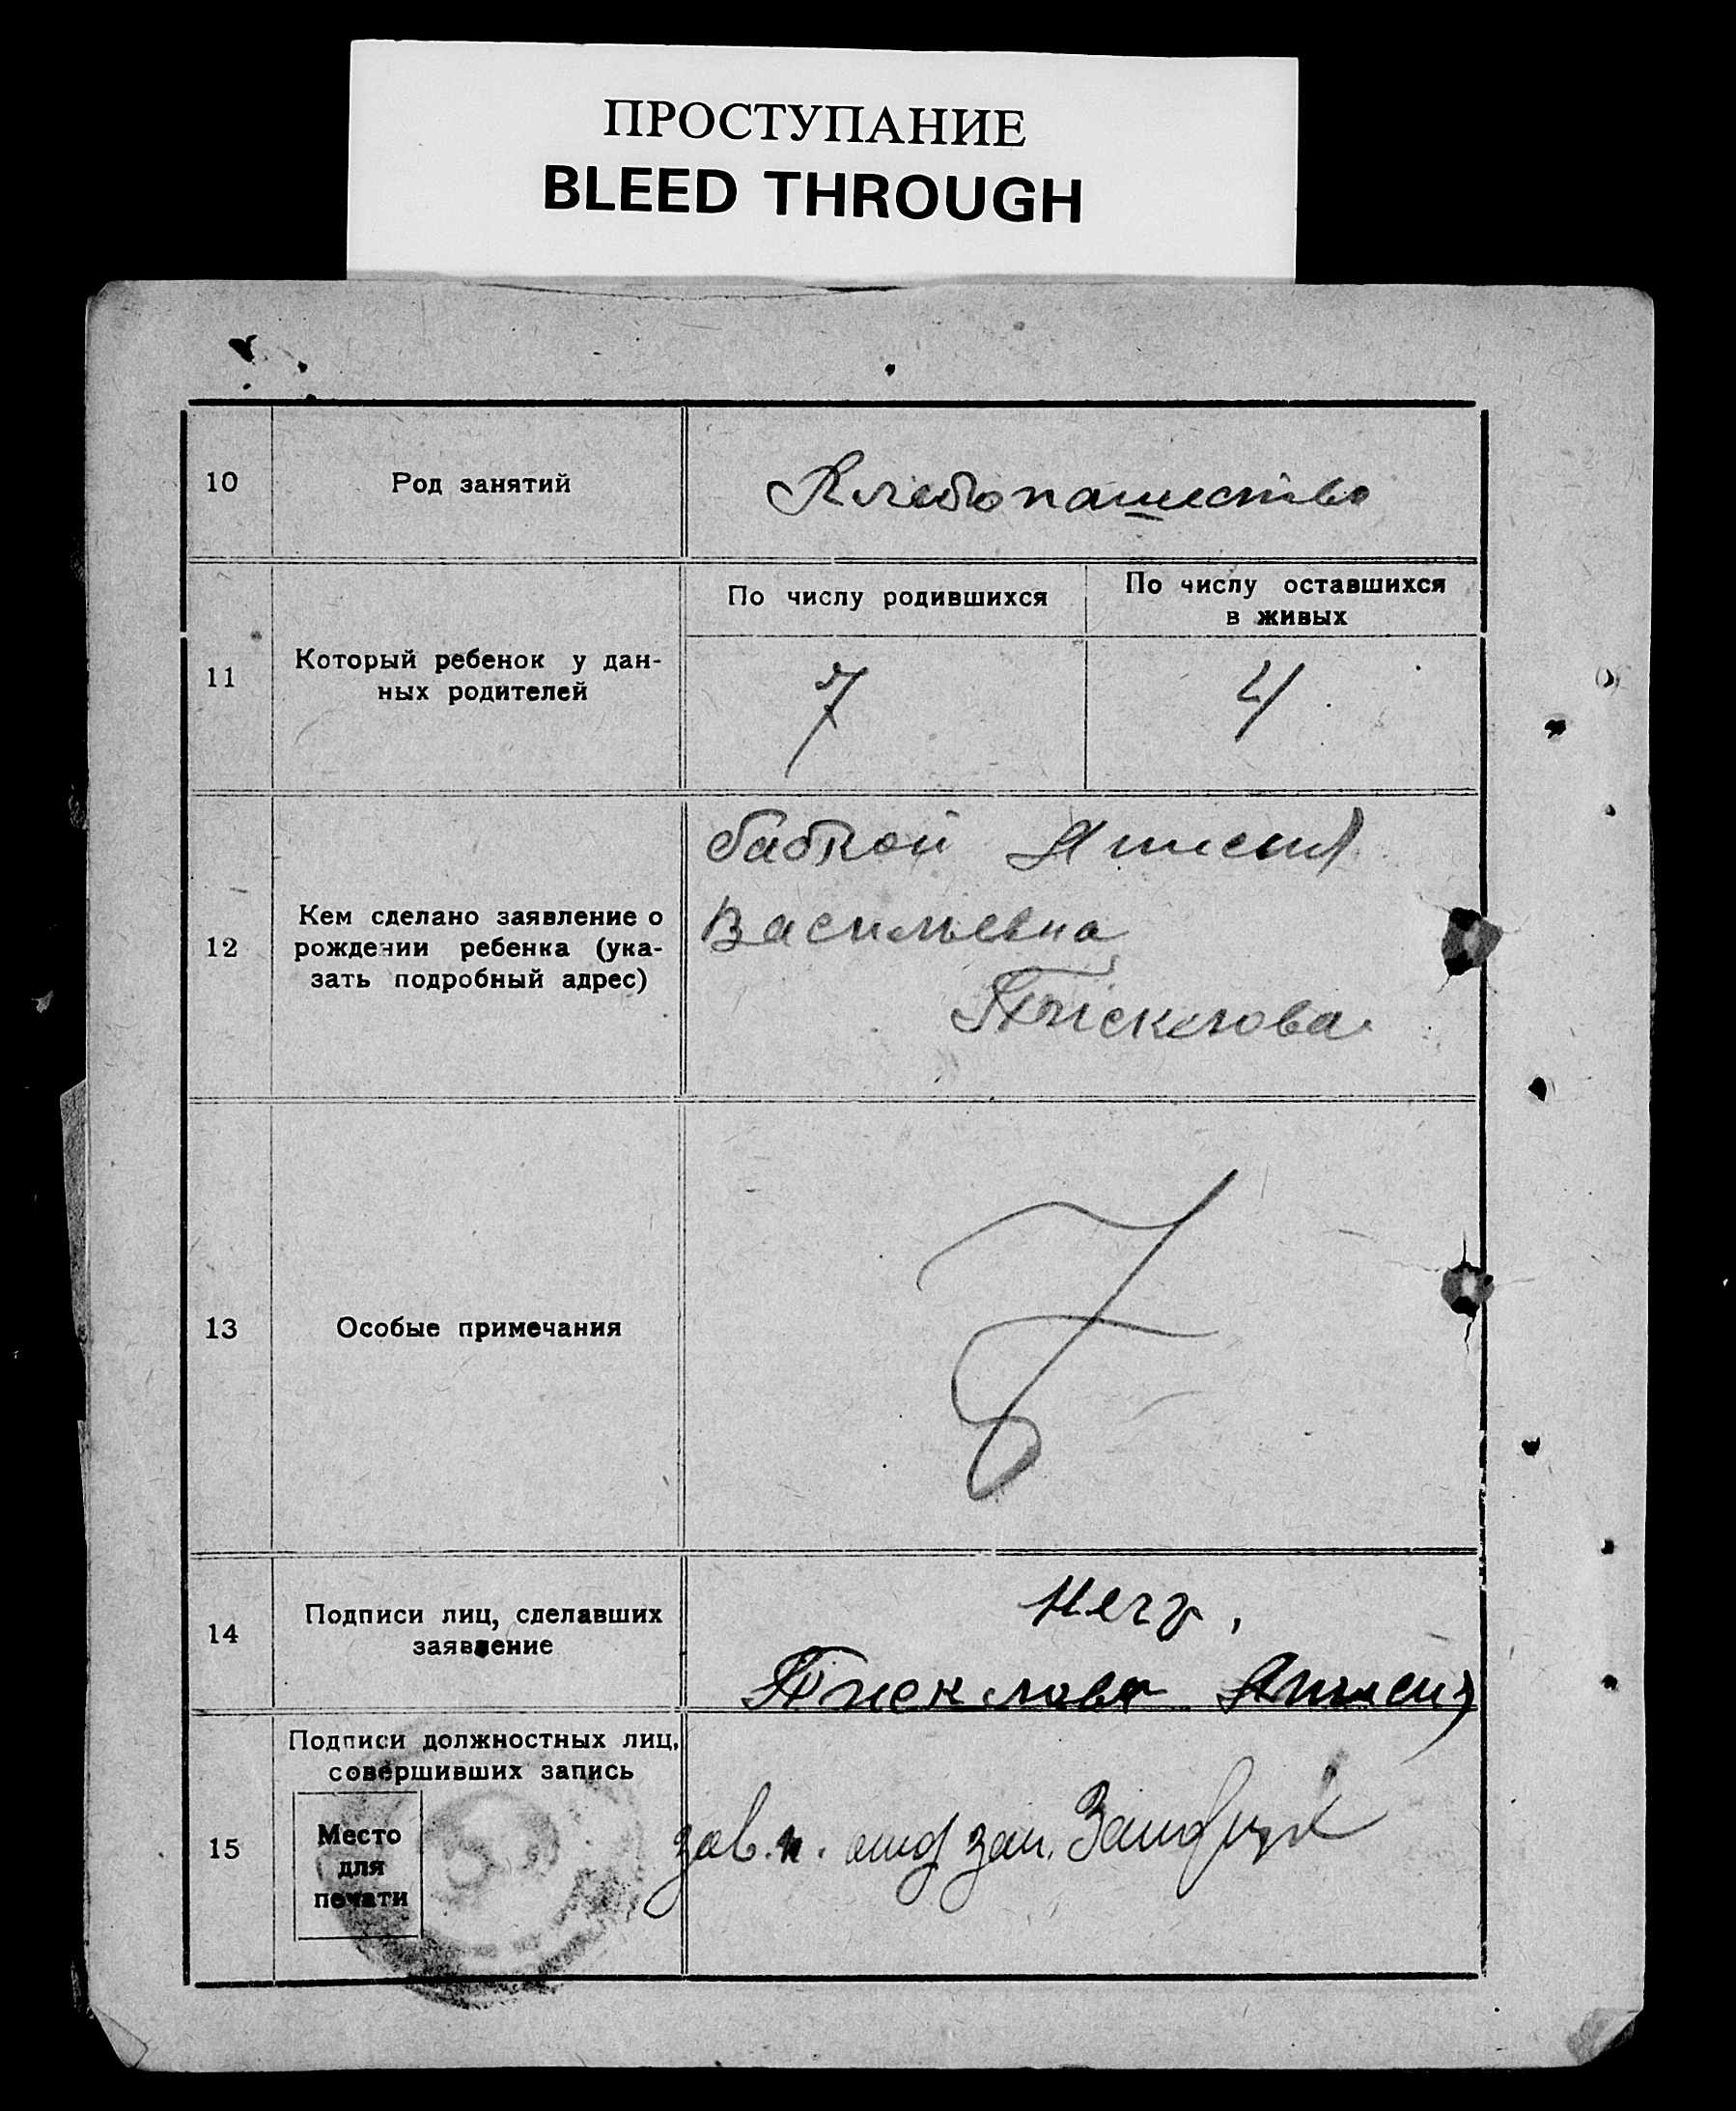 ПРОСТУПАНИЕ
BLEED THROUGH
10
Род занятий
Хлебопашество
11
Который ребенок у дан-
ных родителей
По числу родившихся
По числу оставшихся
в живых
7
4
12
Кем сделано заявление о
рождении ребенка (ука-
зать подробный адрес)
бабкой
Васильевна
13
Особые примечания
14
Подписи лиц, сделавших
заявление
Негр.
15
Подписи должностных лиц,
совершивших запись
Место
для
печати
зав.